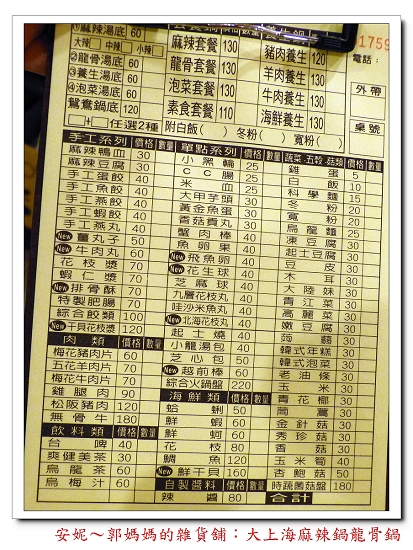 ①麻辣湯底 60
大辣 中辣 小辣
②龍骨湯底 60
③養生湯底 60
④泡菜湯底 60
鴛鴦鍋底 120
任選2種
麻辣套餐 130
龍骨套餐 130
泡菜套餐 130
素食套餐 110
豬肉養生 120
羊肉養生 130
牛肉養生 130
海鮮養生 130
附白飯( ) 冬粉( ) 寬粉( )
1759
電話:
外帶
桌號
手工系列 價格 數量
麻辣鴨血 30
麻辣豆腐 30
手工蛋餃 40
手工魚餃 40
手工燕餃 40
手工蝦餃 40
手工燕丸 40
New 薑丸子 50
New 牛肉丸 60
花枝漿 70
蝦仁漿 70
New 排骨酥 70
特製肥腸 70
綜合餃類 100
New 干貝花枝漿 120
肉類 價格 數量
梅花豬肉片 60
五花羊肉片 70
梅花牛肉片 70
雞腿肉 90
松阪豬肉 120
無骨牛 180
飲料類 價格 數量
台啤 40
爽健美茶 30
烏龍茶 60
烏梅汁 60
單點系列 價格 數量
小黑輪 25
CC腸 25
米血 25
大甲芋頭 30
黃金魚蛋 30
香菇貢丸 30
蟹肉棒 40
魚卵果 40
New 飛魚卵 40
New 花生球 40
芝麻球 40
九層花枝丸 40
哇沙米魚丸 40
New 北海花枝丸 40
起士燒 40
小龍湯包 40
芝心包 50
New 越前棒 60
綜合火鍋盤 220
海鮮類 價格 數量
蛤蜊 50
鮮蝦 60
鮮蚵 60
花枝 80
鯛魚 120
New 鮮干貝 160
自製醬料 價格 數量
辣醬 80
蔬菜·五穀·菇類 價格 數量
雞蛋 5
白飯 10
科學麵 15
冬粉 20
寬粉 20
烏龍麵 25
凍豆腐 30
起士豆腐 30
豆皮 30
木耳 30
大陸妹 30
青江菜 30
高麗菜 30
嫩豆腐 30
蒟蒻 30
韓式年糕 30
韓式泡菜 30
老油條 30
玉米 30
青花椰 30
茼蒿 30
金針菇 30
秀珍菇 30
香菇 30
玉米筍 40
杏鮑菇 60
時蔬菌菇盤 180
合計
安妮～郭媽媽的雜貨舖：大上海麻辣鍋龍骨鍋